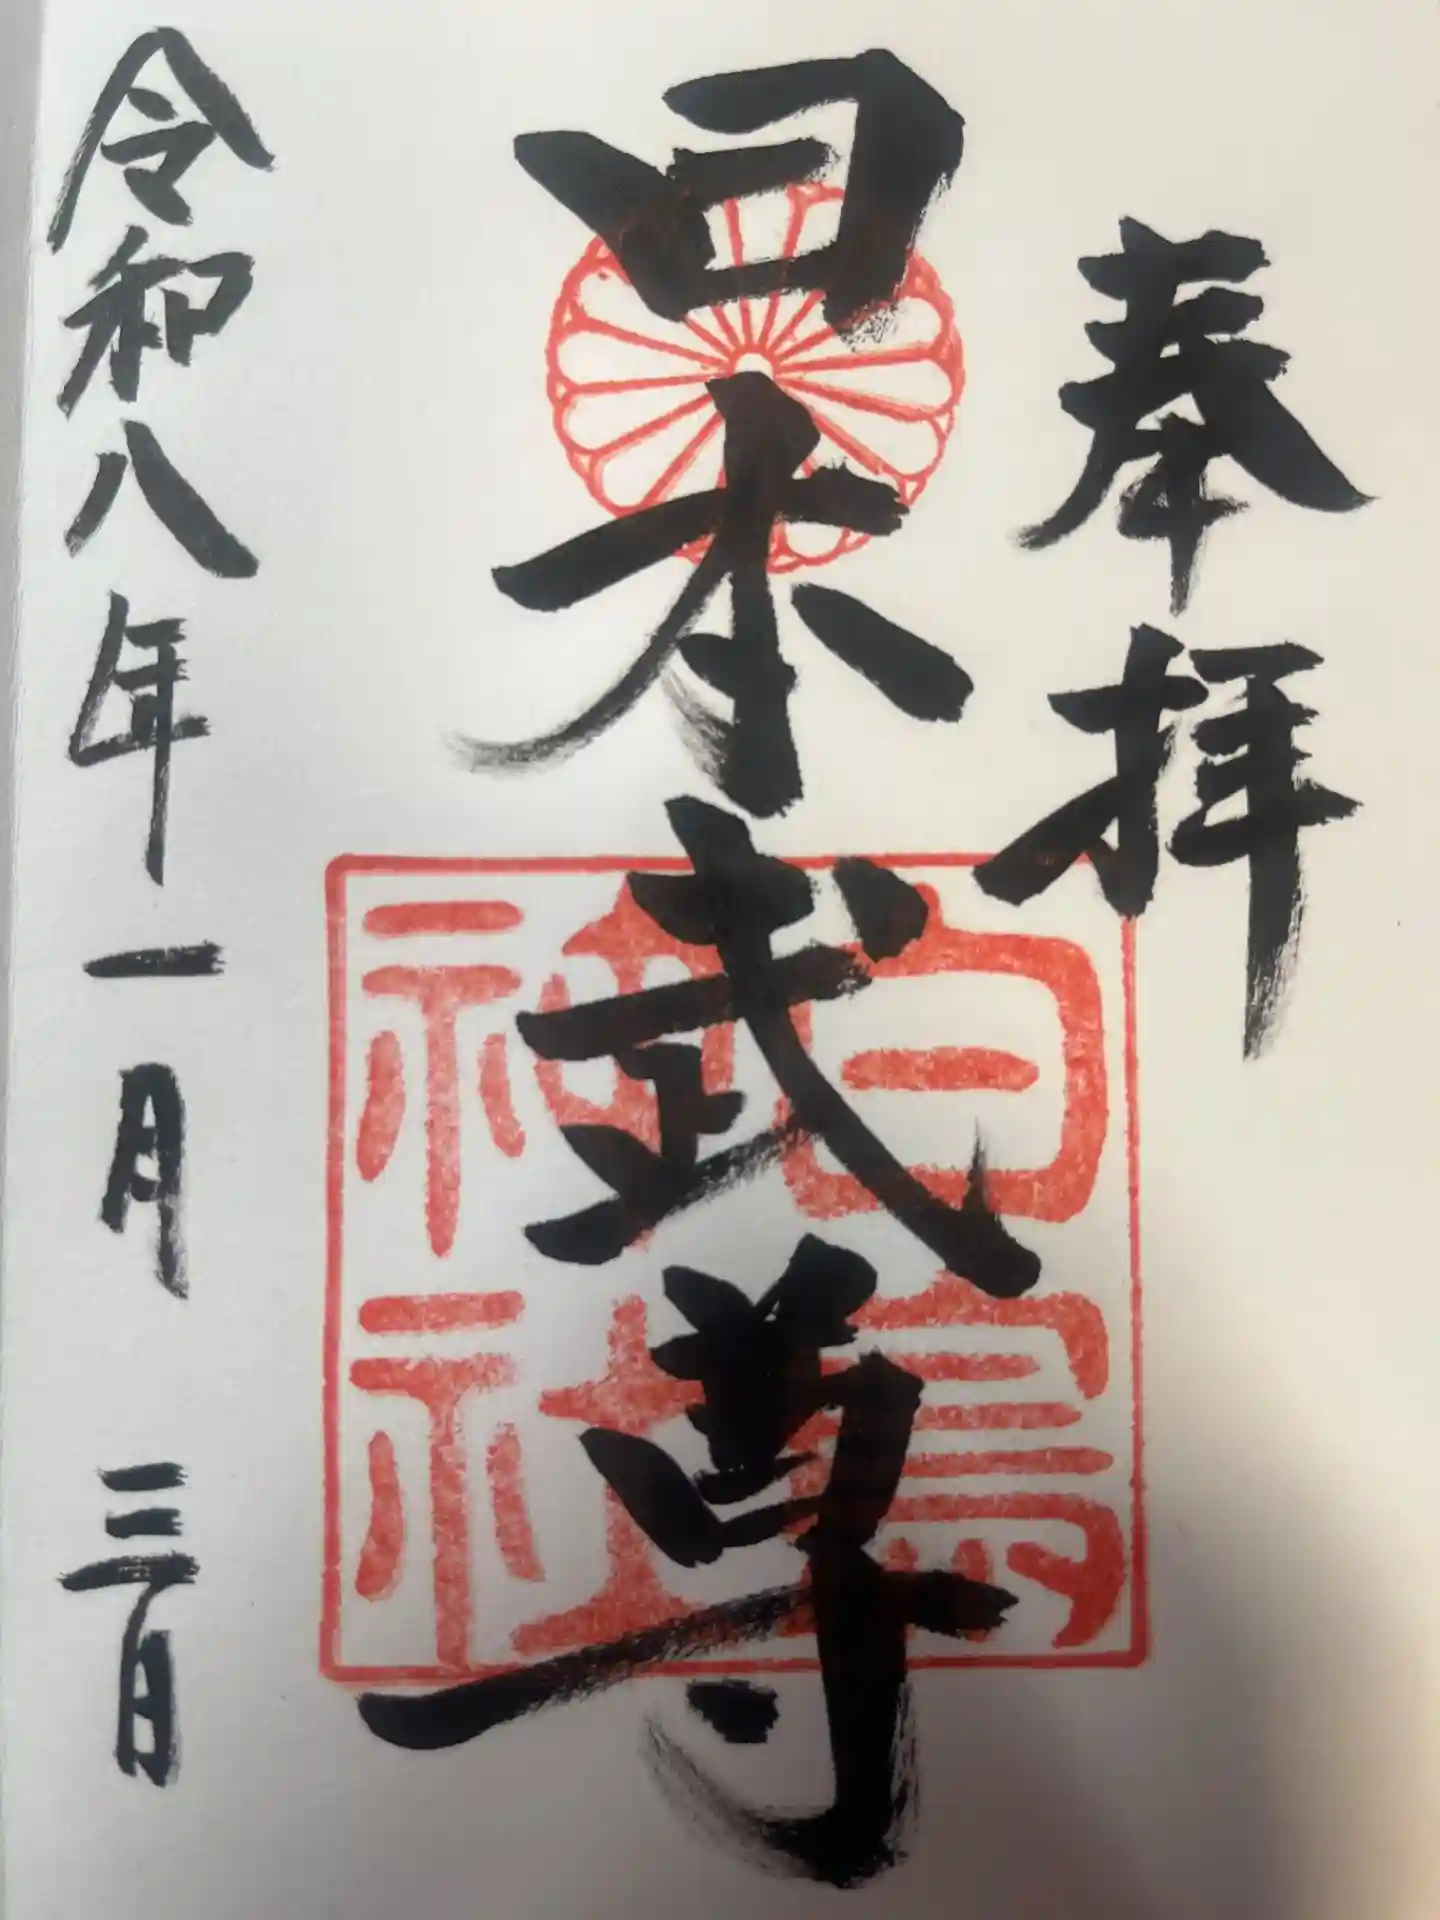 奉拝
日本武尊
白鳥
神社
令和八年一月三日